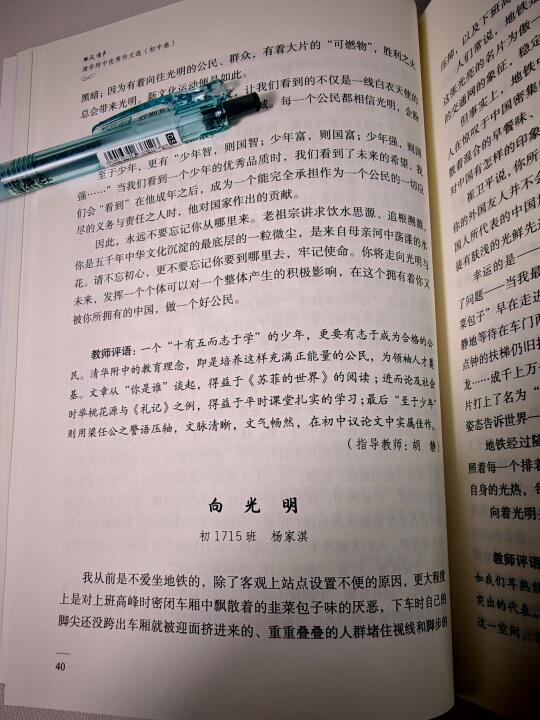 清华附中优秀作文选（初中卷）
黑暗；因为有着向往光明的公民、群众，有着大片的“可燃物”，胜利之火
总会带来光明。新文化运动便是如此。
让我们看到的不仅是一线白衣天使的
每一个公民都相信光明，企盼
至于少年，更有“少年智，则国智；少年富，则国富；少年强，则国
强……”当我们看到一个少年的优秀品质时，我们看到了未来的希望，我
们会“看到”在他成年之后，成为一个能完全承担作为一个公民的一切应
尽的义务与责任之人时，他对国家作出的贡献。
因此，永远不要忘记你从哪里来。老祖宗讲求饮水思源、追根溯源，
你是五千年中华文化沉淀的最底层的一粒微尘，是来自母亲河中荡漾的水
花。请不忘初心，更不要忘记你要到哪里去，牢记使命。你将走向光明与
未来，发挥一个个体可以对一个整体产生的积极影响，在这个拥有着你又
被你所拥有的中国，做一个好公民。
教师评语：一个“十有五而志于学”的少年，更要有志于成为合格的公
民。清华附中的教育理念，即是培养这样充满正能量的公民，为领袖人才奠
基。文章从“你是谁”谈起，得益于《苏菲的世界》的阅读；进而论及社会
时举桃花源与《礼记》之例，得益于平时课堂扎实的学习；最后“至于少年”
则用梁任公之警语压轴，文脉清晰，文气畅然，在初中议论文中实属佳作。
（指导教师：胡 静）
向光明
初1715班 杨家淇
我从前是不爱坐地铁的，除了客观上站点设置不便的原因，更大程度
上是对上班高峰时密闭车厢中飘散着的韭菜包子味的厌恶，下车时自己的
脚尖还没跨出车厢就被迎面挤进来的、重重叠叠的人群堵住视线和脚步的
40
压抑，以及下班高
人们常说，地铁
这张光亮的名片为傲
的交通网的象征，稳定
但事实上，地铁中
人在惊叹于中国密集
散着混合的早餐味、
对中国有怎样的印象
崔卫平说，你所
你的外国友人并不会
国人所代表的中国
徒有肤浅的光鲜亮
幸运的是——
了问题——当我最
菜包子”早在走进
静地等待在车门两
点钟的扶梯仍旧
龙……成千上万
片打上了名为“
姿态告诉世界—
地铁经过隧
照着每一个排着
自身的光热，每
向着光明去
教师评语
如我们耳熟能
突出的代表。
这一空间，